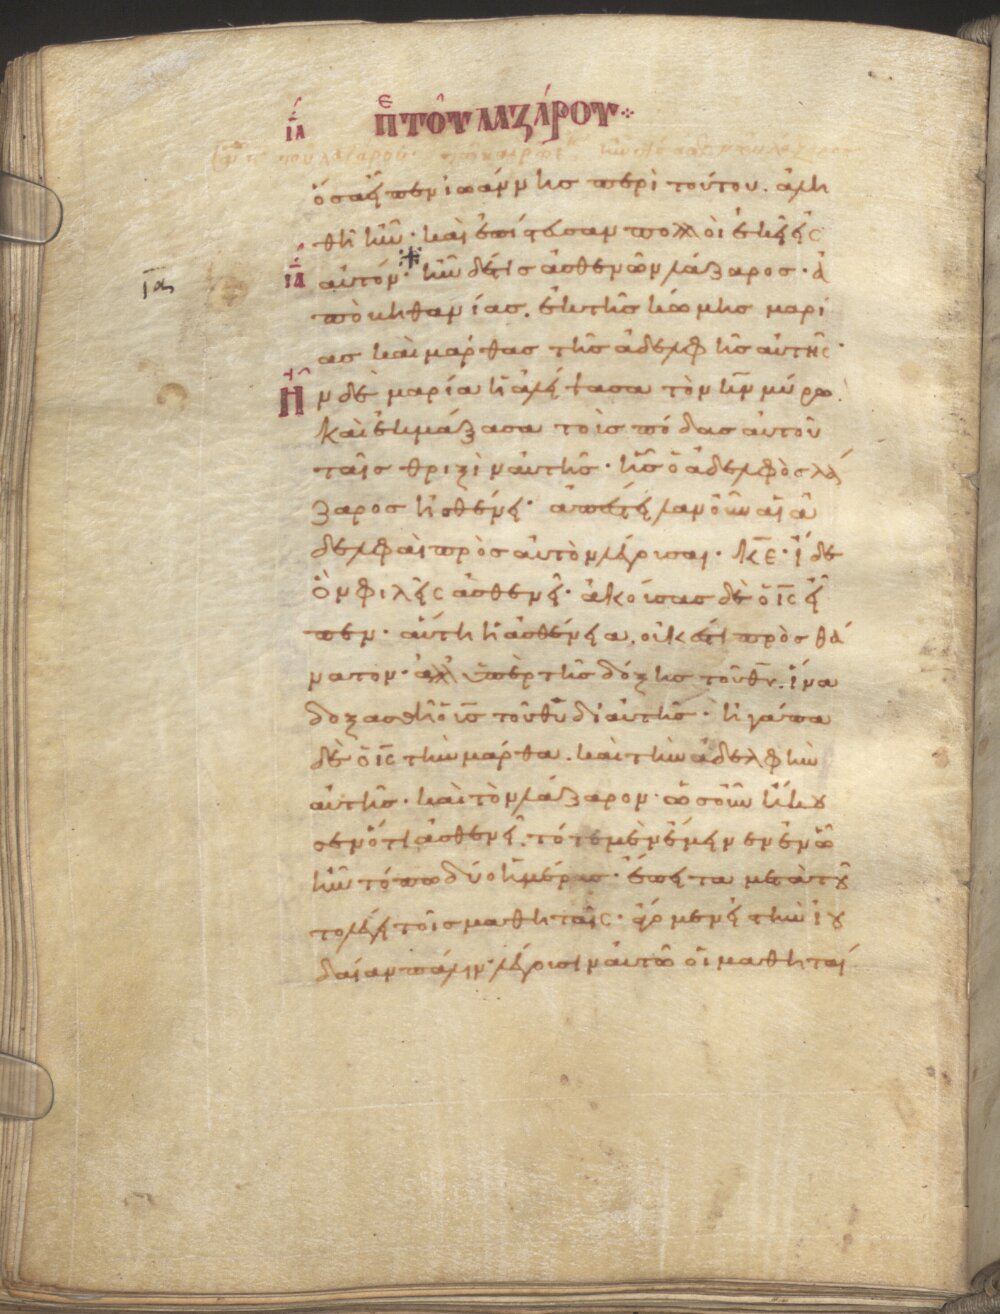 ιᾱ πε τοῦ λαζάρου
ὅσα εἶπεν ἰωάννης περὶ τούτου. ἀλη
θῆ ἦν· καὶ ἐπίστευσαν πολλοὶ ἐκεῖ εἰς
ια αὐτόν· ἦν δέ τις ἀσθενῶν λάζαρος· ἀ
ια
πὸ βηθανίας. ἐκ τῆς κώμης μαρί
ας καὶ μάρθας τῆς ἀδελφῆς αὐτῆς·
Ἦν δὲ μαρία ἡ ἀλείψασα τὸν κ̅ν̅ μύρω·
καὶ ἐκμάξασα τοὺς πόδας αὐτοῦ
ταῖς θριξὶν αὐτῆς· ἧς ὁ ἀδελφὸς λά
ζαρος ἠσθένει· ἀπέστειλαν οὖν αἱ ἀ
δελφαὶ πρὸς αὐτὸν λέγουσαι· κ̅ε̅· ἴδε
ὃν φιλεῖς ἀσθενεῖ· ἀκούσας δὲ ὁ ι̅ς̅ εἶ
πεν· αὕτη ἡ ἀσθένεια, οὐκ ἔστι πρὸς θά
νατον· ἀλλ ὑπὲρ τῆς δόξης τοῦ θ̅υ̅. ἵνα
δοξασθῆ ὁ υ̅ς̅ τοῦ θ̅υ̅ δι αὐτῆς· ἠγάπα
δὲ ὁ ι̅ς̅ τὴν μάρθα. καὶ τὴν ἀδελφὴν
αὐτῆς· καὶ τὸν λάζαρον· ὡς οὖν ἤκου
σεν ὅτι ἀσθενεῖ. τότε μὲν ἔμεινεν ἐν ᾧ
ἦν τόπω δύο ἡμέρας· ἔπειτα μετὰ τοῦ
το λέγει τοῖς μαθηταῖς· ἄγωμεν εἰς τὴν ἰου
δαίαν πάλιν· λέγουσιν αὐτῶ οἱ μαθηταί